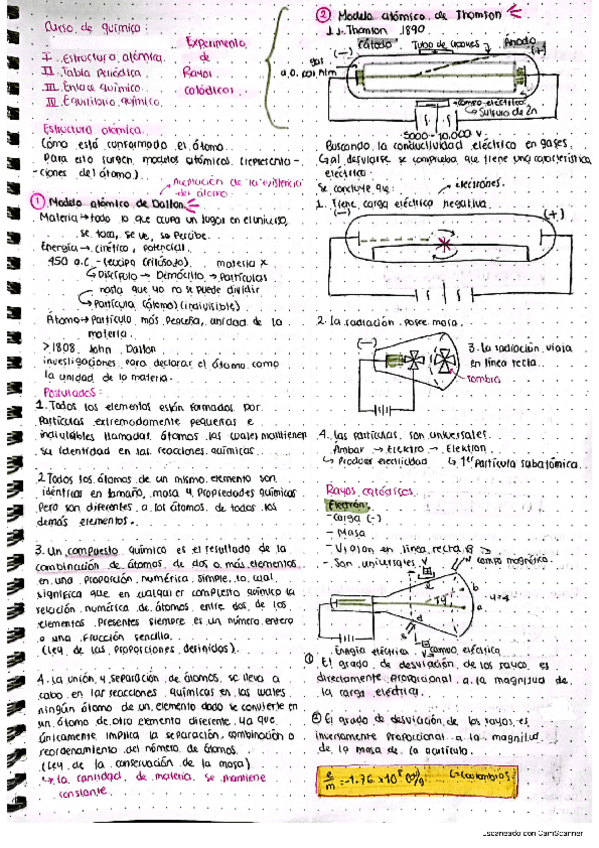 Curso de química:
I. Estructura atómica.
II. Tabla Periódica.
III. Enlace químico.
IV. Equilibrio químico.
Experimento
de
Rayos
catódicos.
Estructura atómica.
Cómo está conformado el átomo.
Para ello surgen modelos atómicos (representa-
-ciones del átomo).
Aceptación de la existencia
del átomo
① Modelo atómico de Dalton
Materia → todo lo que ocupa un lugar en el universo,
se toca, se ve, se percibe.
Energía → cinética, potencial.
450 a.C - Leucipo (filósofo). materia x
↳ Discípulo → Demócrito → Partículas
hasta que ya no se puede dividir
↳ Partícula (átomo) (indivisible)
Átomo → Partícula más pequeña, unidad de la
materia.
> 1808 John Dalton
investigaciones para declarar el átomo como
la unidad de la materia.
Postulados:
1. Todos los elementos están formados por
Partículas extremadamente pequeñas e
indivisibles llamadas átomos las cuales mantienen
su identidad en las reacciones químicas.
2. Todos los átomos de un mismo elemento son
idénticos en tamaño, masa y Propiedades químicas
Pero son diferentes a los átomos de todos los
demás elementos.
3. Un compuesto químico es el resultado de la
combinación de átomos de dos o más elementos
en una proporción numérica simple, lo cual
significa que en cualquier compuesto químico la
relación numérica de átomos entre dos de los
elementos Presentes siempre es un número entero
o una fracción sencilla.
(Ley de las proporciones definidas).
4. La unión y separación de átomos se lleva a
cabo en las reacciones químicas en las cuales
ningún átomo de un elemento dado se convierte en
un átomo de otro elemento diferente ya que
únicamente implica la separación, combinación o
reordenamiento del número de átomos.
(Ley de la conservación de la masa)
↳ la cantidad de materia se mantiene
constante.
② Modelo atómico de Thomson
J.J. Thomson 1890
Cátodo Tubo de Crookes Ánodo
(-) (+)
gas
campo eléctrico
Sulfuro de Zn
5000 - 10,000 v
Buscando la conductividad eléctrica en gases.
al desviarse se comprueba que tiene una característica
eléctrica.
Se concluye que: electrones.
1. Tiene carga eléctrica negativa.
(+)
2. la radiación posee masa.
(-)
3. la radiación viaja
en línea recta.
sombra
4. las partículas son universales.
Ambar → Elektro → Elektron
↳ Producir electricidad ↳ 1er Partícula subatómica.
Rayos catódicos.
Electrón:
- carga (-)
- Masa
- Viajan en línea recta
- Son universales
campo magnético
Energía eléctrica campo eléctrico
① El grado de desviación de los rayos es
directamente proporcional a la magnitud de
la carga eléctrica.
② El grado de desviación de los rayos es
inversamente proporcional a la magnitud
de la masa de la partícula.
e/m = -1.76 x 10⁸ c/g (coulombios)
Escaneado con CamScanner